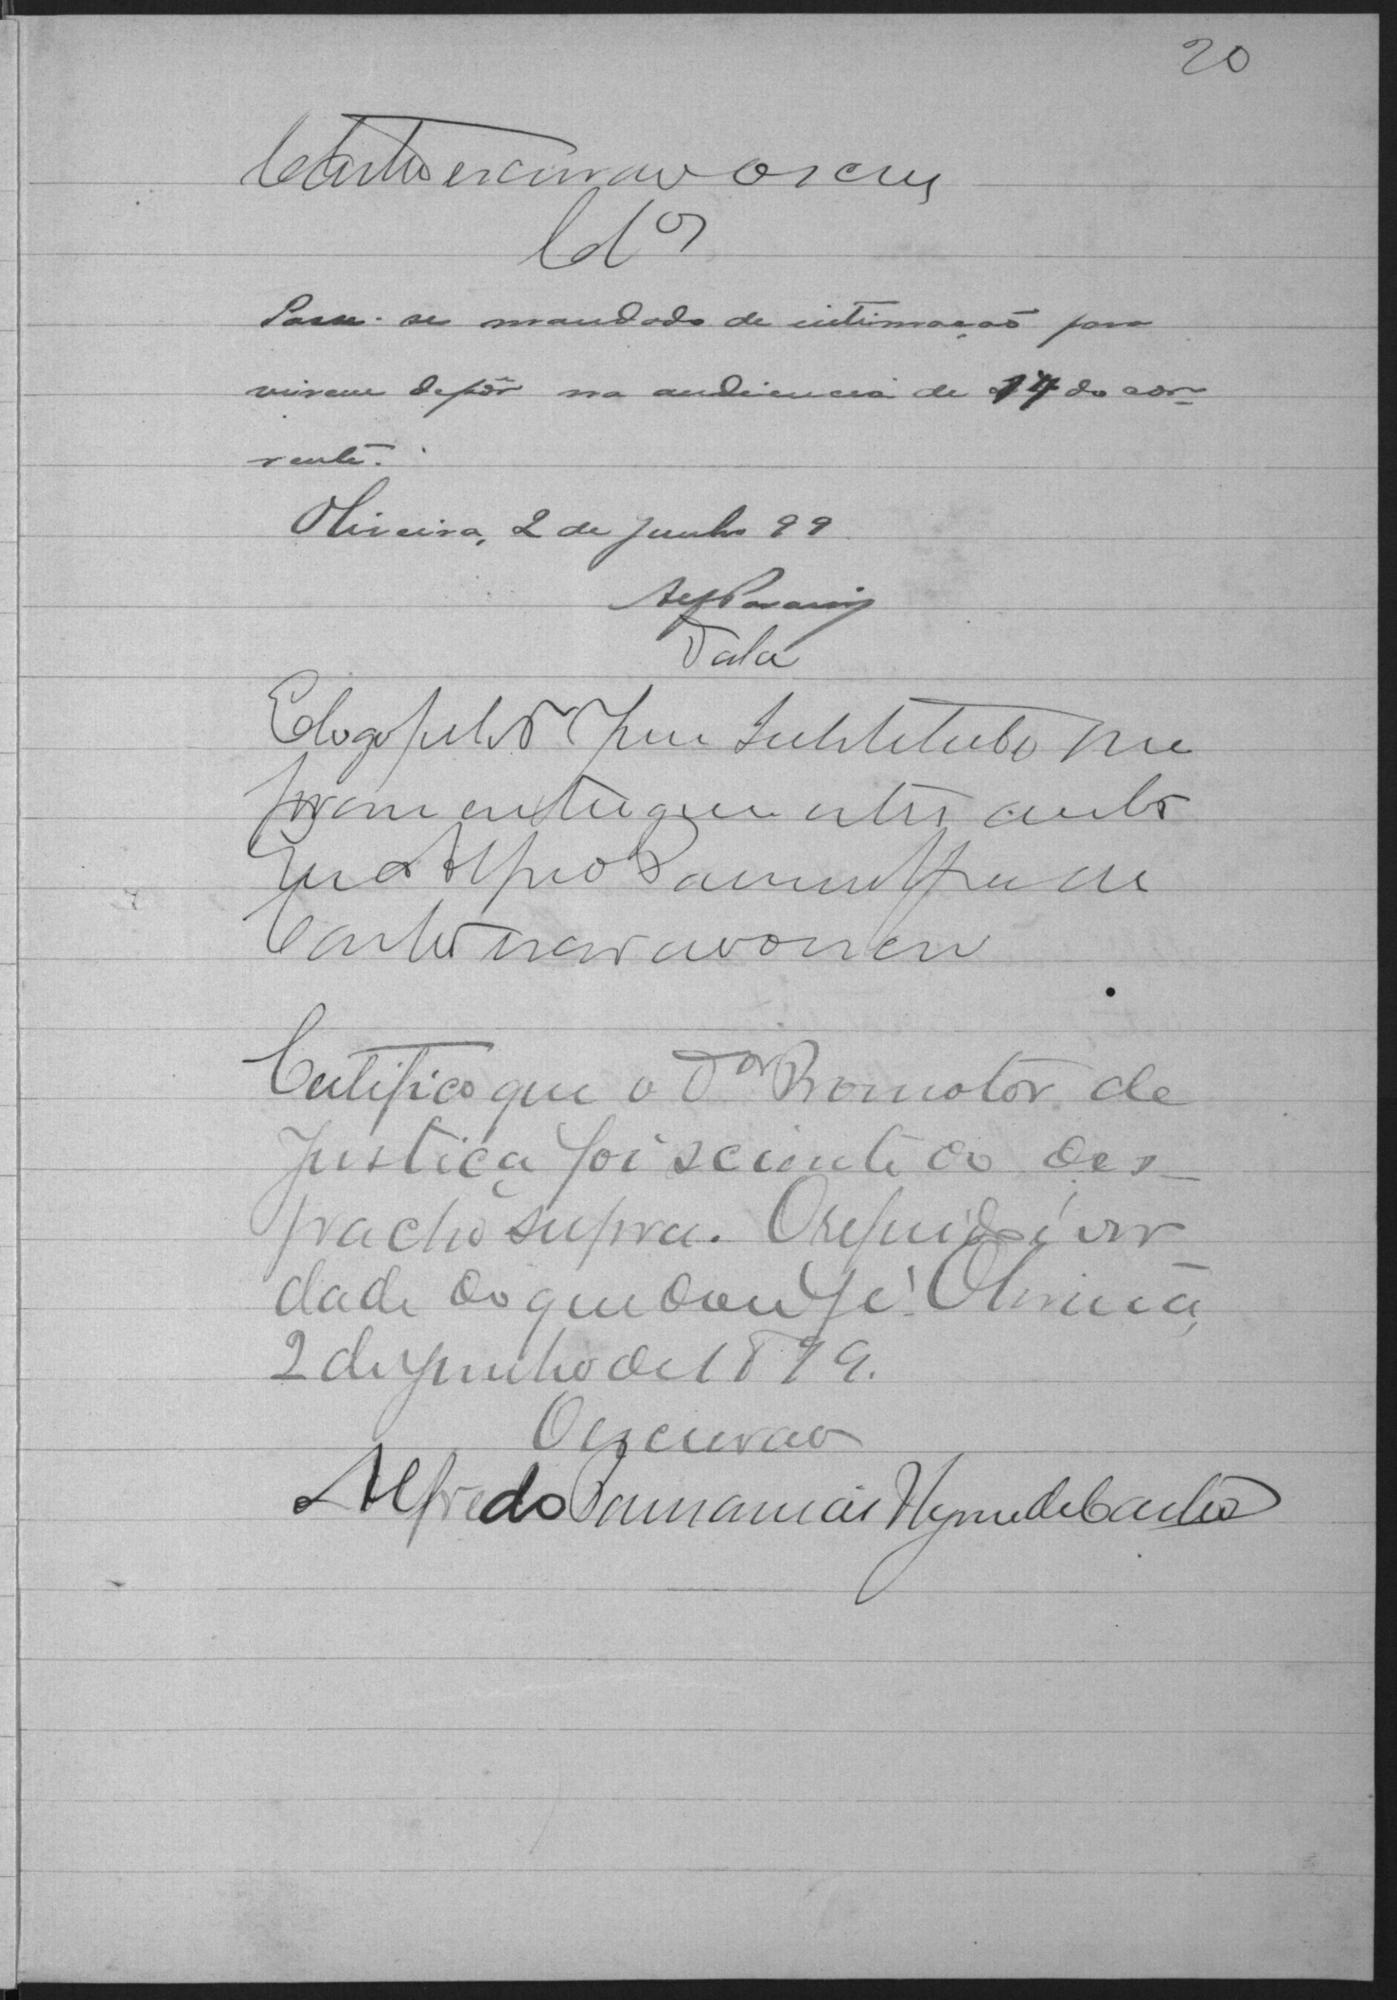 20
Castro escrivão o escrevi
Cl.os
Passe-se mandado de intimação para
virem depôr na audiencia de 17 do cor-
rente.
Oliveira, 2 de Junho 99
Data
E logo pelo Dr Juiz Substituto me
foram entregues estes autos
Eu Alfredo Paranahos Hygino de
Castro escrivão o escrevi
Certifico que o Dor Promotor de
Justiça foi sciente do des-
pacho supra. O referido é ver
dade do que dou fé. Oliveira,
2 de Junho de 1899.
O escrivão
Alfredo de Castro